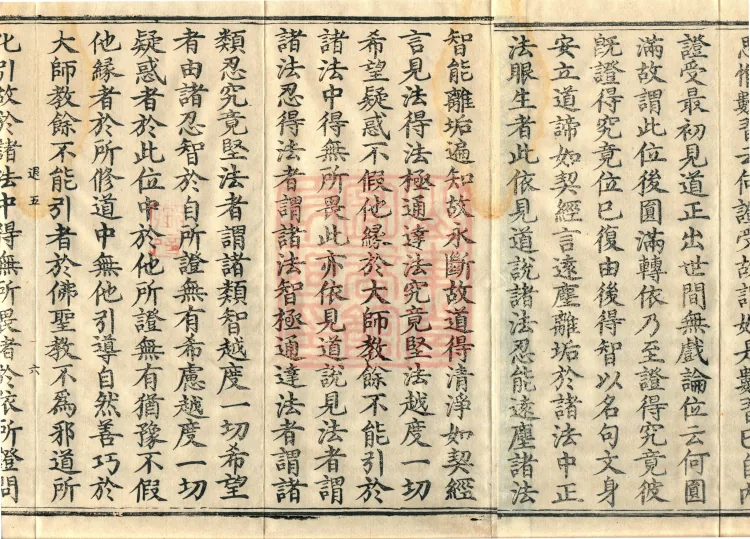 證受最初見道正出世間無戲論位云何圓
滿故謂此位後圓滿轉依乃至證得究竟彼
旣證得究竟位已復由後得智以名句文身
安立道諦如契經言遠塵離垢於諸法中正
法眼生者此依見道說諸法忍能遠塵諸法
智能離垢遍知故永斷故道得清淨如契經
言見法得法極通達法究竟堅法越度一切
希望疑惑不假他緣於大師教餘不能引於
諸法中得無所畏此亦依見道說見法者謂
諸法忍得法者謂諸法智極通達法者謂諸
類忍究竟堅法者謂諸類智越度一切希望
者由諸忍智於自所證無有希慮越度一切
疑惑者於此位中於他所證無有猶豫不假
他緣者於所修道中無他引導自然善巧於
大師教餘不能引者於佛聖教不爲邪道所
退五 六
化引故於諸法中得無所畏者於依所證問